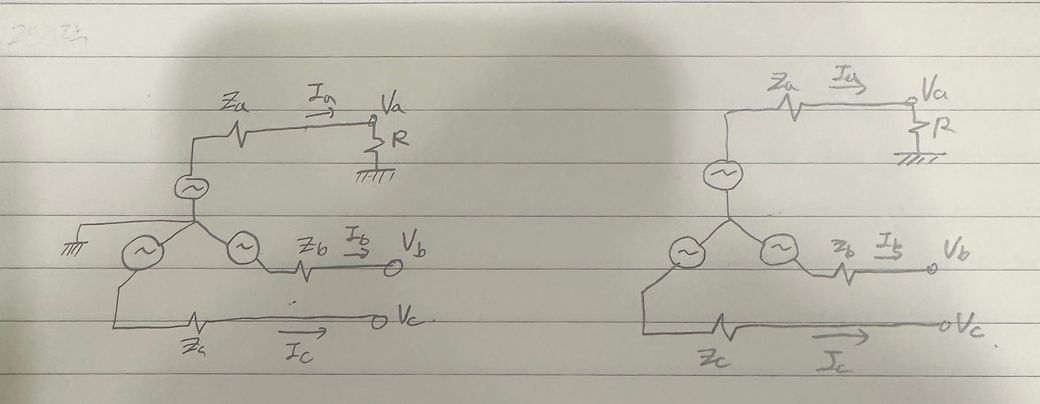 Za
Ia
Va
R
Zb
Ib
Vb
Zc
Ic
Vc
Za
Ia
Va
R
Zb
Ib
Vb
Zc
Ic
Vc.